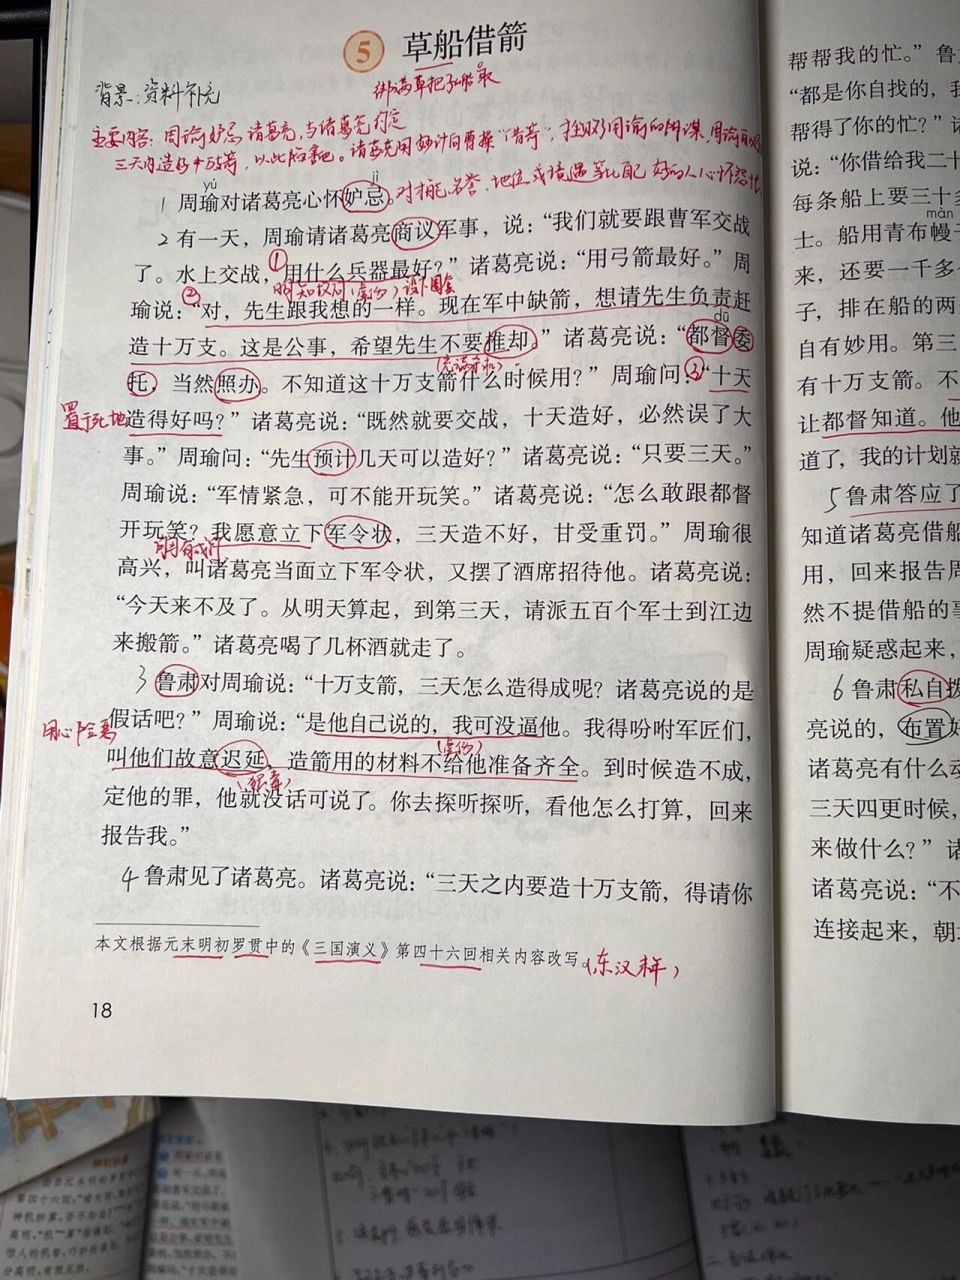 5 草船借箭
绑满草把子的船 取
背景：资料补充
主要内容：周瑜妒忌诸葛亮，与诸葛亮约定
三天内造好十万支箭，以此陷害他。诸葛亮用妙计向曹操“借箭”，挫败周瑜的阴谋，周瑜自
yú jì
1 周瑜对诸葛亮心怀妒忌。
对才能、名誉、地位或境遇等比自己好的人心怀怨恨
2 有一天，周瑜请诸葛亮商议军事，说：“我们就要跟曹军交战
了。水上交战，①用什么兵器最好？”诸葛亮说：“用弓箭最好。”周
明知故问（虚伪）设下圈套
瑜说：②“对，先生跟我想的一样。现在军中缺箭，想请先生负责赶
dū
造十万支。这是公事，希望先生不要推却。”诸葛亮说：“都督委
托，当然照办。不知道这十万支箭什么时候用？”周瑜问：③“十天
置于死地
造得好吗？”诸葛亮说：“既然就要交战，十天造好，必然误了大
事。”周瑜问：“先生预计几天可以造好？”诸葛亮说：“只要三天。”
周瑜说：“军情紧急，可不能开玩笑。”诸葛亮说：“怎么敢跟都督
开玩笑？我愿意立下军令状，三天造不好，甘受重罚。”周瑜很
胸有成竹
高兴，叫诸葛亮当面立下军令状，又摆了酒席招待他。诸葛亮说：
“今天来不及了。从明天算起，到第三天，请派五百个军士到江边
来搬箭。”诸葛亮喝了几杯酒就走了。
3 鲁肃对周瑜说：“十万支箭，三天怎么造得成呢？诸葛亮说的是
用心险恶
假话吧？”周瑜说：“是他自己说的，我可没逼他。我得吩咐军匠们，
（虚伪）
叫他们故意迟延，造箭用的材料不给他准备齐全。到时候造不成，
（狠毒）
定他的罪，他就没话可说了。你去探听探听，看他怎么打算，回来
报告我。”
4 鲁肃见了诸葛亮。诸葛亮说：“三天之内要造十万支箭，得请你
本文根据元末明初罗贯中的《三国演义》第四十六回相关内容改写。
（东汉末年）
18
帮帮我的忙。”鲁
“都是你自找的，我
帮得了你的忙？”诸
说：“你借给我二十
每条船上要三十多
màn
士。船用青布幔子
来，还要一千多
子，排在船的两
自有妙用。第三
有十万支箭。不
让都督知道。他
道了，我的计划就
5 鲁肃答应了
知道诸葛亮借船
用，回来报告周
然不提借船的事
周瑜疑惑起来，
6 鲁肃私自拨
亮说的，布置好
诸葛亮有什么动
三天四更时候，
来做什么？”诸
诸葛亮说：“不
连接起来，朝